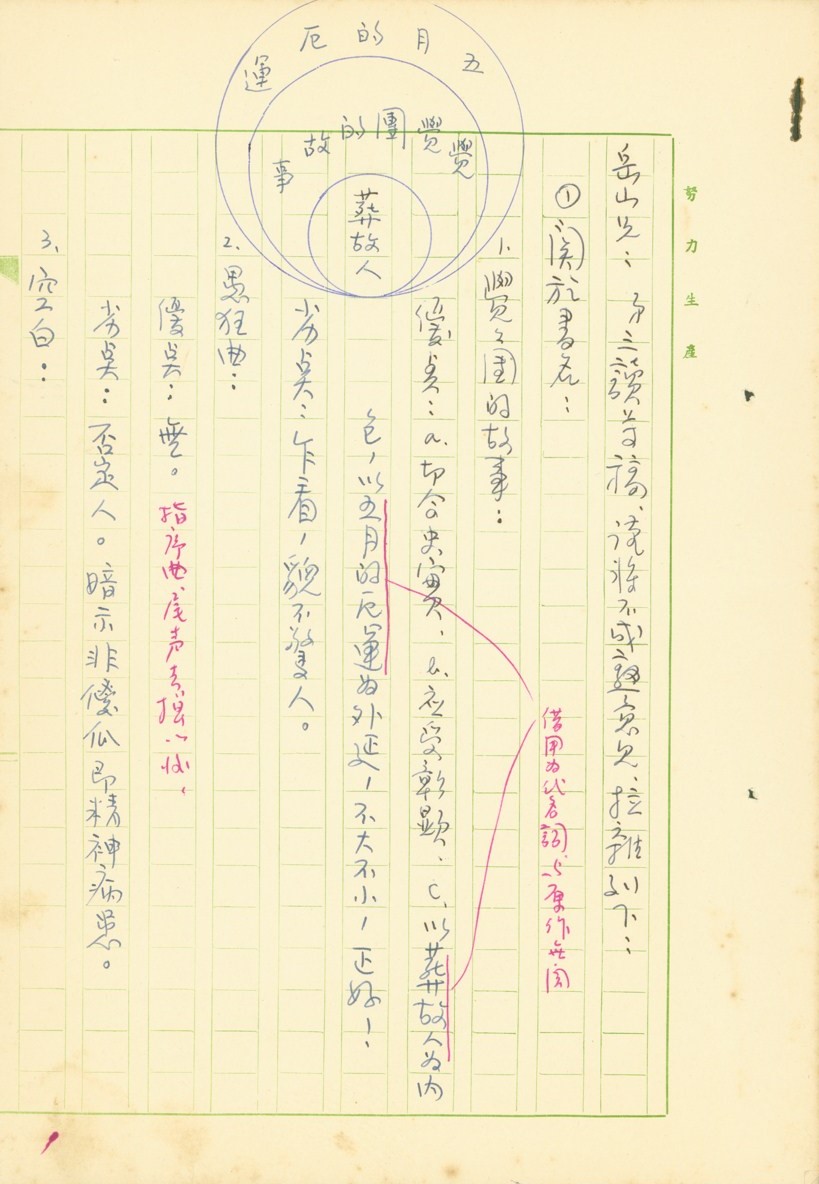 努力生產
岳山兄：弟三讀著稿，謹將不成熟意見，拉雜列下：
①關於書名：
借用為代名詞，與原作無關
1. 覺覺團的故事：
優點：a. 切合史實，b. 應受彰顯，c. 以葬故人為內
包，以五月的厄運為外延，不大不小，正好！
劣點：乍看，貌不驚人。
2. 愚狂曲：
優點：無。指序曲、尾聲
劣點：否定人。暗示非傻瓜即精神病患。
3. 空白：
五月的厄運
覺覺團的故事
葬故人